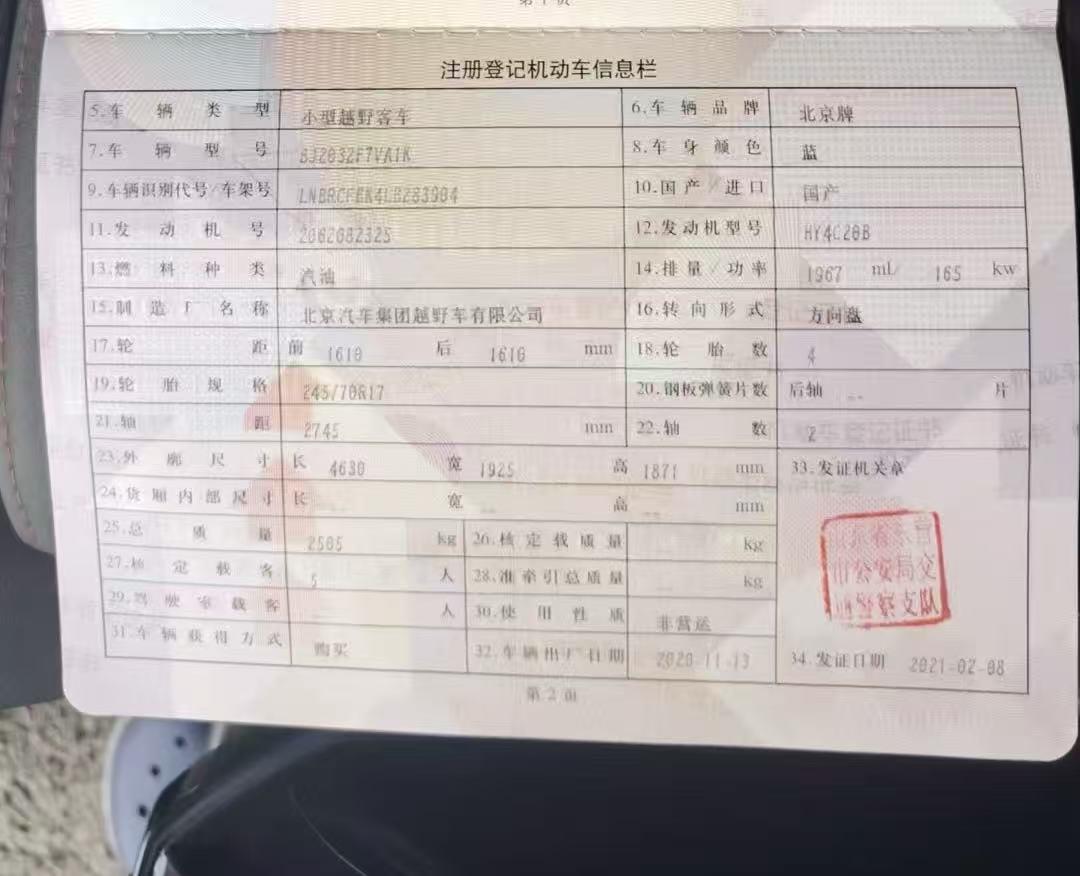 注册登记机动车信息栏
5.车辆类型 小型越野客车 6.车辆品牌 北京牌
7.车辆型号 BJ2032F7VA1K 8.车身颜色 蓝
9.车辆识别代号/车架号 10.国产/进口 国产
11.发动机号 2062082325 12.发动机型号 HY4C20B
13.燃料种类 汽油 14.排量/功率 1967 ml/ 165 kw
15.制造厂名称 北京汽车集团越野车有限公司 16.转向形式 方向盘
17.轮距 前 1610 后 1610 mm 18.轮胎数 4
19.轮胎规格 245/70R17 20.钢板弹簧片数 后轴 -- 片
21.轴距 2745 mm 22.轴数 2
23.外廓尺寸 长 4630 宽 1925 高 1871 mm 33.发证机关章
24.货厢内部尺寸 长 宽 高 mm
25.总质量 2505 kg 26.核定载质量 kg
27.核定载客 5 人 28.准牵引总质量 kg
29.驾驶室载客 人 30.使用性质 非营运
31.车辆获得方式 购买 32.车辆出厂日期 2020-11-13 34.发证日期 2021-02-08
市公安局交
警察支队
第2页